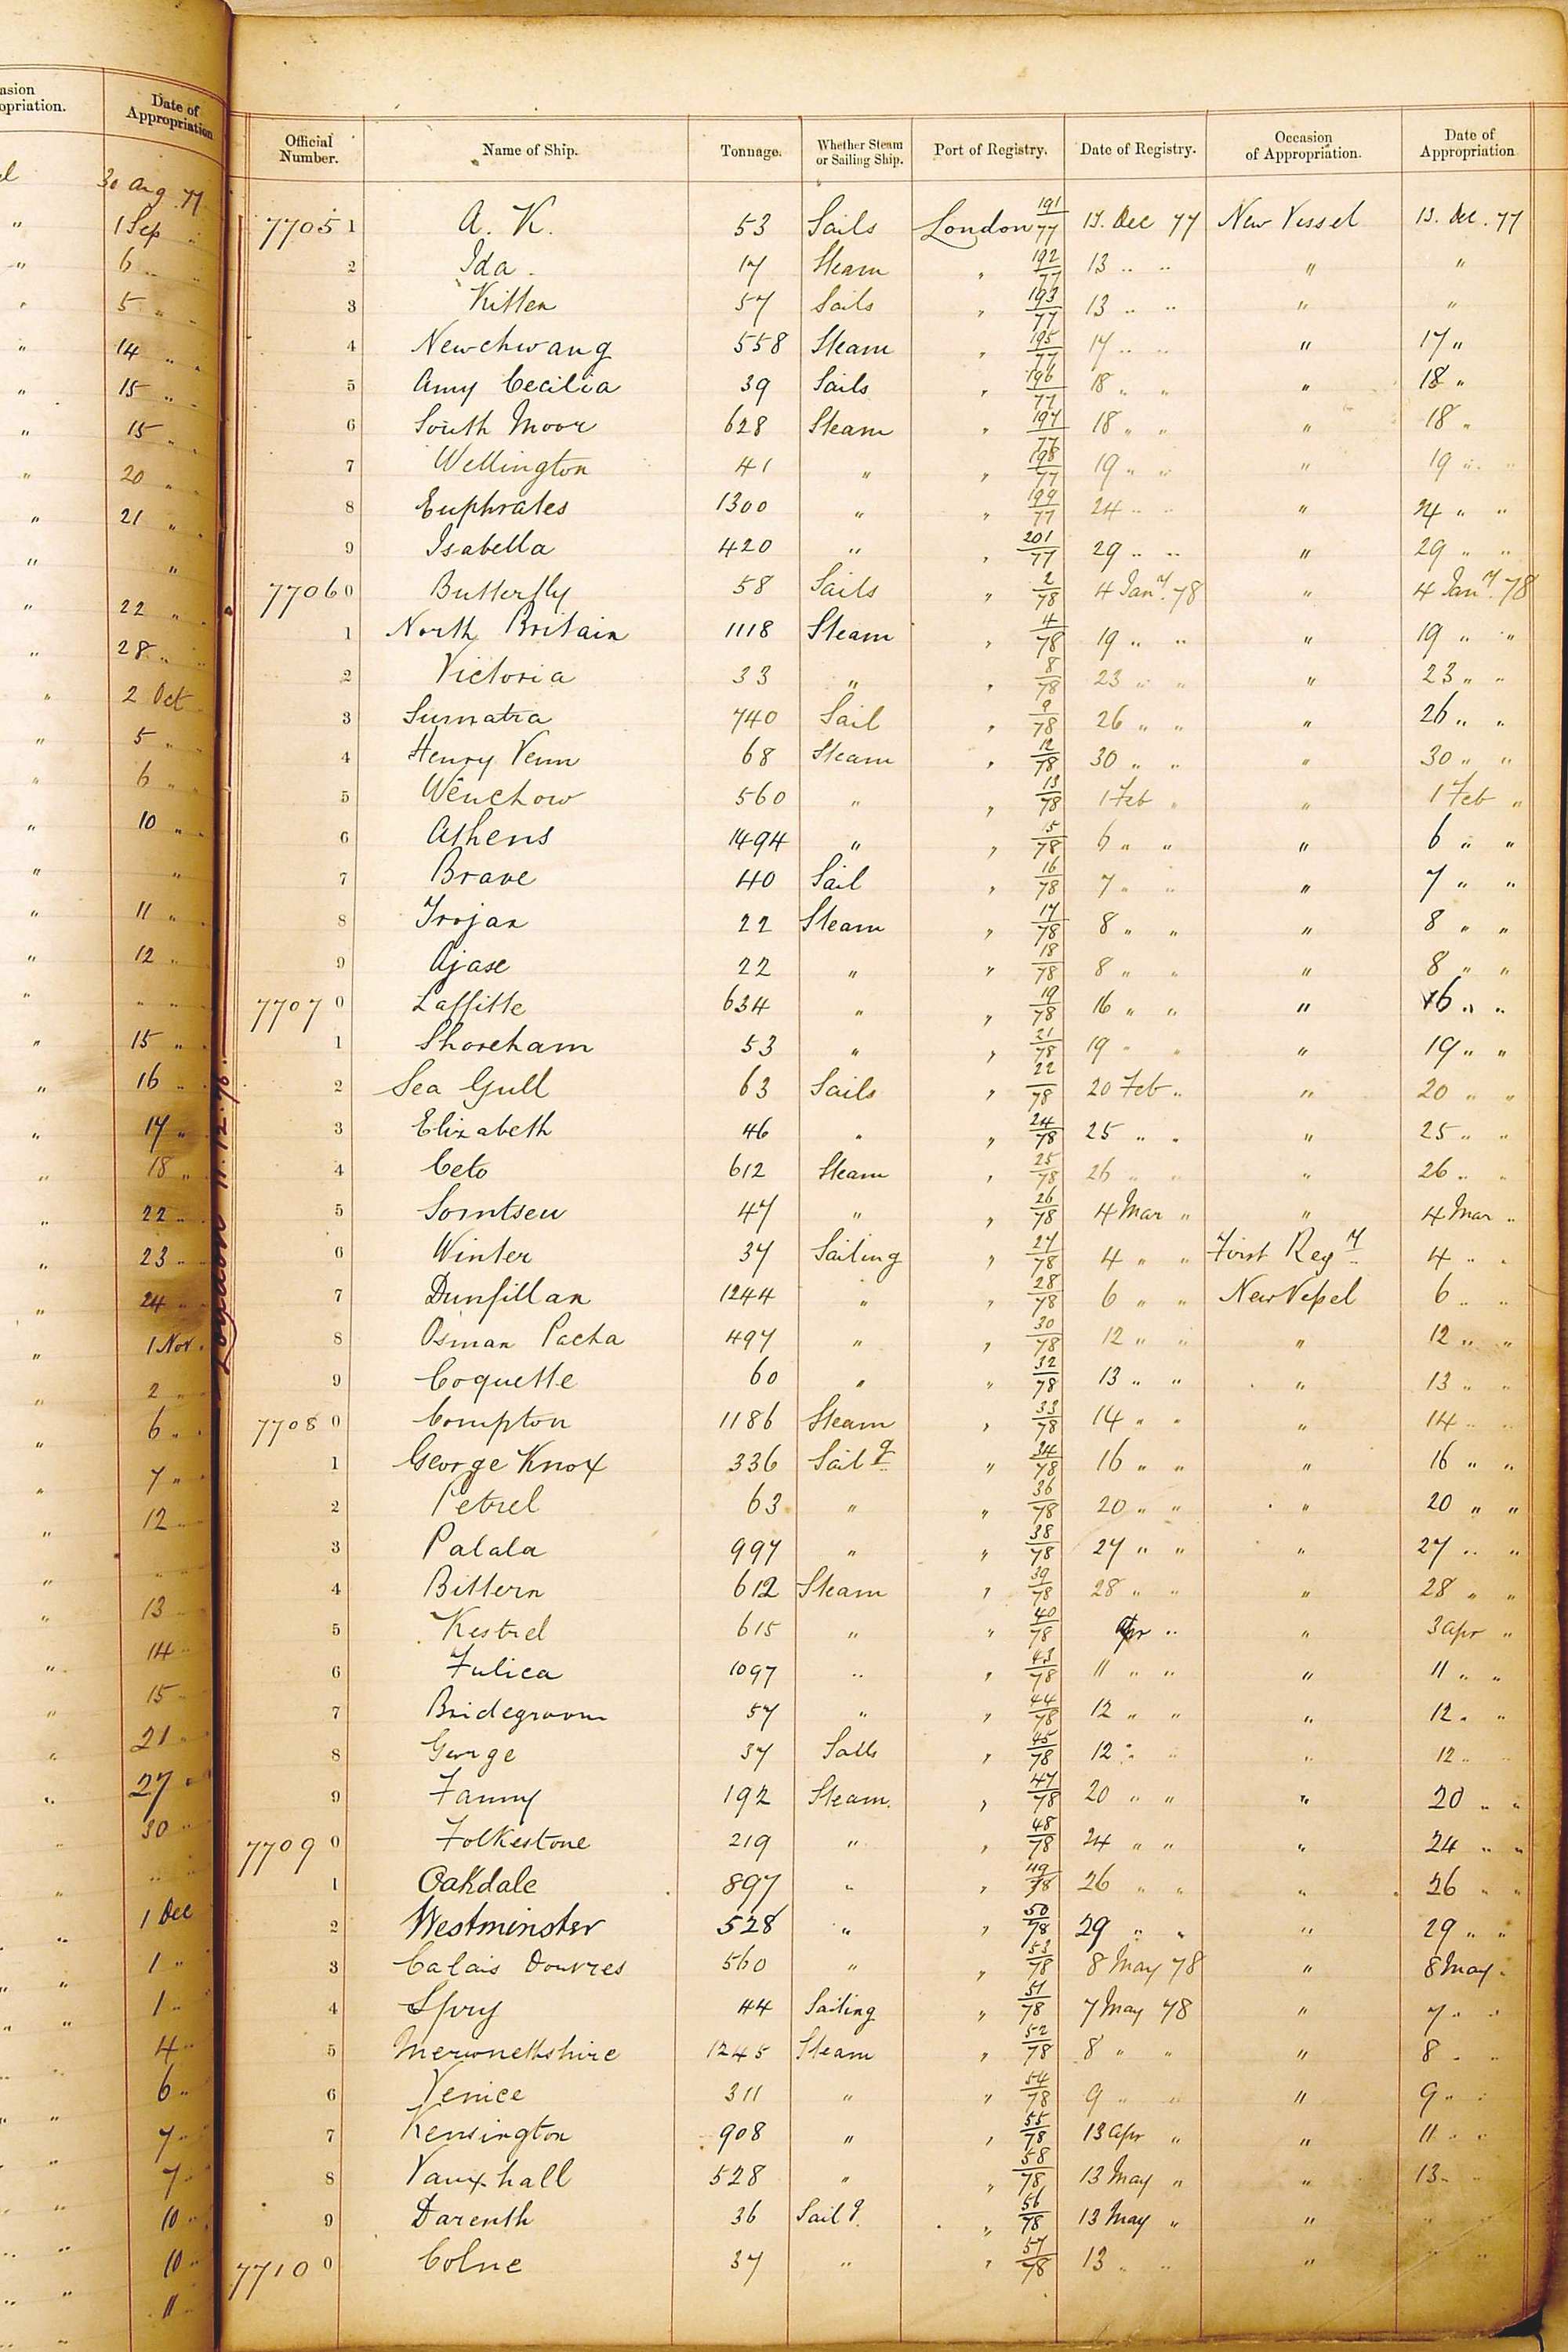 asion
opriation.
Date of
Appropriation
30 Aug 77
1 Sep "
6 " "
5 " "
14 " "
15 " "
15 "
20 " "
21 " "
"
22 "
28 "
2 Oct
5 "
6 "
10 " "
"
11 "
12 "
" "
15 "
16 "
17 "
18 "
22 "
23 "
24 "
1 Nov
2 "
6 "
7 "
12 "
" "
13 "
14 "
15 "
21 "
27 "
30 "
" "
1 Dec
1 "
1 "
4 "
6 "
7 "
7 "
10 "
10 "
11 "
Official Number. Name of Ship. Tonnage. Whether Steam or Sailing Ship. Port of Registry. Date of Registry. Occasion of Appropriation. Date of Appropriation
77051 A. K. 53 Sails London 191/77 13. Dec 77 New Vessel 13. Dec. 77
2 Ida 17 Steam " 192/77 13 " " " "
3 Kitten 57 Sails " 193/77 13 " " " "
4 Newchwang 558 Steam " 195/77 17 " " " 17 "
5 Amy Cecilia 39 Sails " 196/77 18 " " " 18 "
6 South Moor 628 Steam " 197/77 18 " " " 18 "
7 Wellington 41 " " 198/77 19 " " " 19 " "
8 Euphrates 1300 " " 199/77 24 " " " 24 " "
9 Isabella 420 " " 201/77 29 " " " 29 " "
77060 Butterfly 58 Sails " 2/78 4 Jany. 78 " 4 Jany. 78
1 North Britain 1118 Steam " 4/78 19 " " " 19 " "
2 Victoria 33 " " 8/78 23 " " " 23 " "
3 Sumatra 740 Sail " 9/78 26 " " " 26 " "
4 Henry Venn 68 Steam " 12/78 30 " " " 30 " "
5 Wenchow 560 " " 13/78 1 Feb " " 1 Feb "
6 Athens 1494 " " 15/78 6 " " " 6 " "
7 Brave 40 Sail " 16/78 7 " " " 7 " "
8 Trojan 22 Steam " 17/78 8 " " " 8 " "
9 Ajase 22 " " 18/78 8 " " " 8 " "
77070 Laffitte 634 " " 19/78 16 " " " 16 " "
1 Shoreham 53 " " 21/78 19 " " " 19 " "
2 Sea Gull 63 Sails " 22/78 20 Feb " " 20 " "
3 Elizabeth 46 " " 24/78 25 " " " 25 " "
4 Ceto 612 Steam " 25/78 26 " " " 26 " "
5 Somtseu 47 " " 26/78 4 Mar " " 4 Mar "
6 Winter 37 Sailing " 27/78 4 " " First Regy 4 " "
7 Dunfillan 1244 " " 28/78 6 " " New Vessel 6 " "
8 Osman Pacha 497 " " 30/78 12 " " " 12 " "
9 Coquette 60 " " 32/78 13 " " " 13 " "
77080 Compton 1186 Steam " 33/78 14 " " " 14 " "
1 George Knox 336 Sailg " 34/78 16 " " " 16 " "
2 Petrel 63 " " 36/78 20 " " " 20 " "
3 Palala 997 " " 38/78 27 " " " 27 " "
4 Bittern 612 Steam " 39/78 28 " " " 28 " "
5 Kestrel 615 " " 40/78 Apr " " 3 Apr "
6 Fulica 1097 " " 43/78 11 " " " 11 " "
7 Bridegroom 57 " " 44/78 12 " " " 12 " "
8 George 37 Sails " 45/78 12 " " " 12 " "
9 Fanny 192 Steam. " 47/78 20 " " " 20 " "
77090 Folkestone 219 " " 48/78 24 " " " 24 " "
1 Oakdale 897 " " 49/78 26 " " " 26 " "
2 Westminster 528 " " 50/78 29 " " " 29 " "
3 Calais Douvres 560 " " 53/78 8 May 78 " 8 May "
4 Spry 44 Sailing " 51/78 7 May 78 " 7 " "
5 Merionethshire 1245 Steam " 52/78 8 " " " 8 " "
6 Venice 311 " " 54/78 9 " " " 9 " "
7 Kensington 908 " " 55/78 13 Apr " " 11 " "
8 Vauxhall 528 " " 58/78 13 May " " 13 " "
9 Darenth 36 Sailg. " 56/78 13 May " " " "
77100 Colne 37 " " 57/78 13 " " " " "
London 11.12.76.